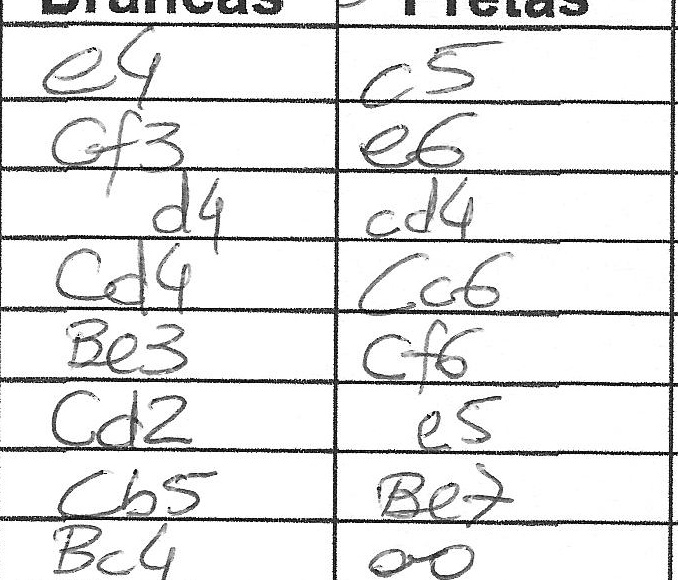 Brancas Pretas
e4 c5
Cf3 e6
d4 cd4
Cd4 Cc6
Be3 Cf6
Cd2 e5
Cb5 Be7
Bc4 oo